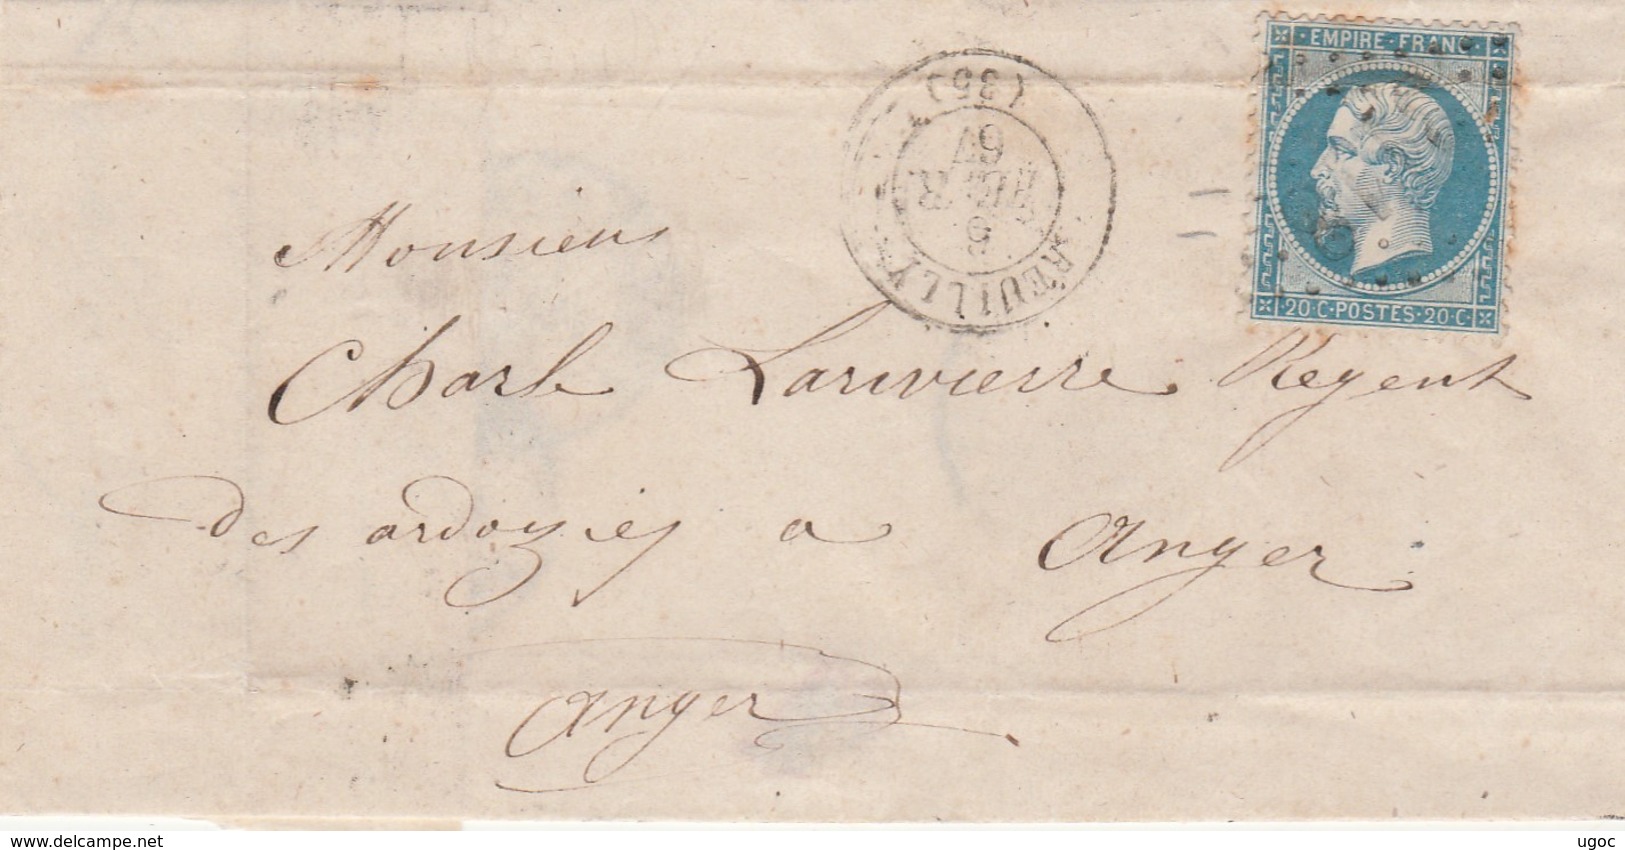 EMPIRE·FRANC·
20·C·POSTES·20·C
REUILLY
5
67
(35)
Monsieur
Charle Larivierre Regent
des ardozies a Anger
Anger
www.delcampe.net
ugoc